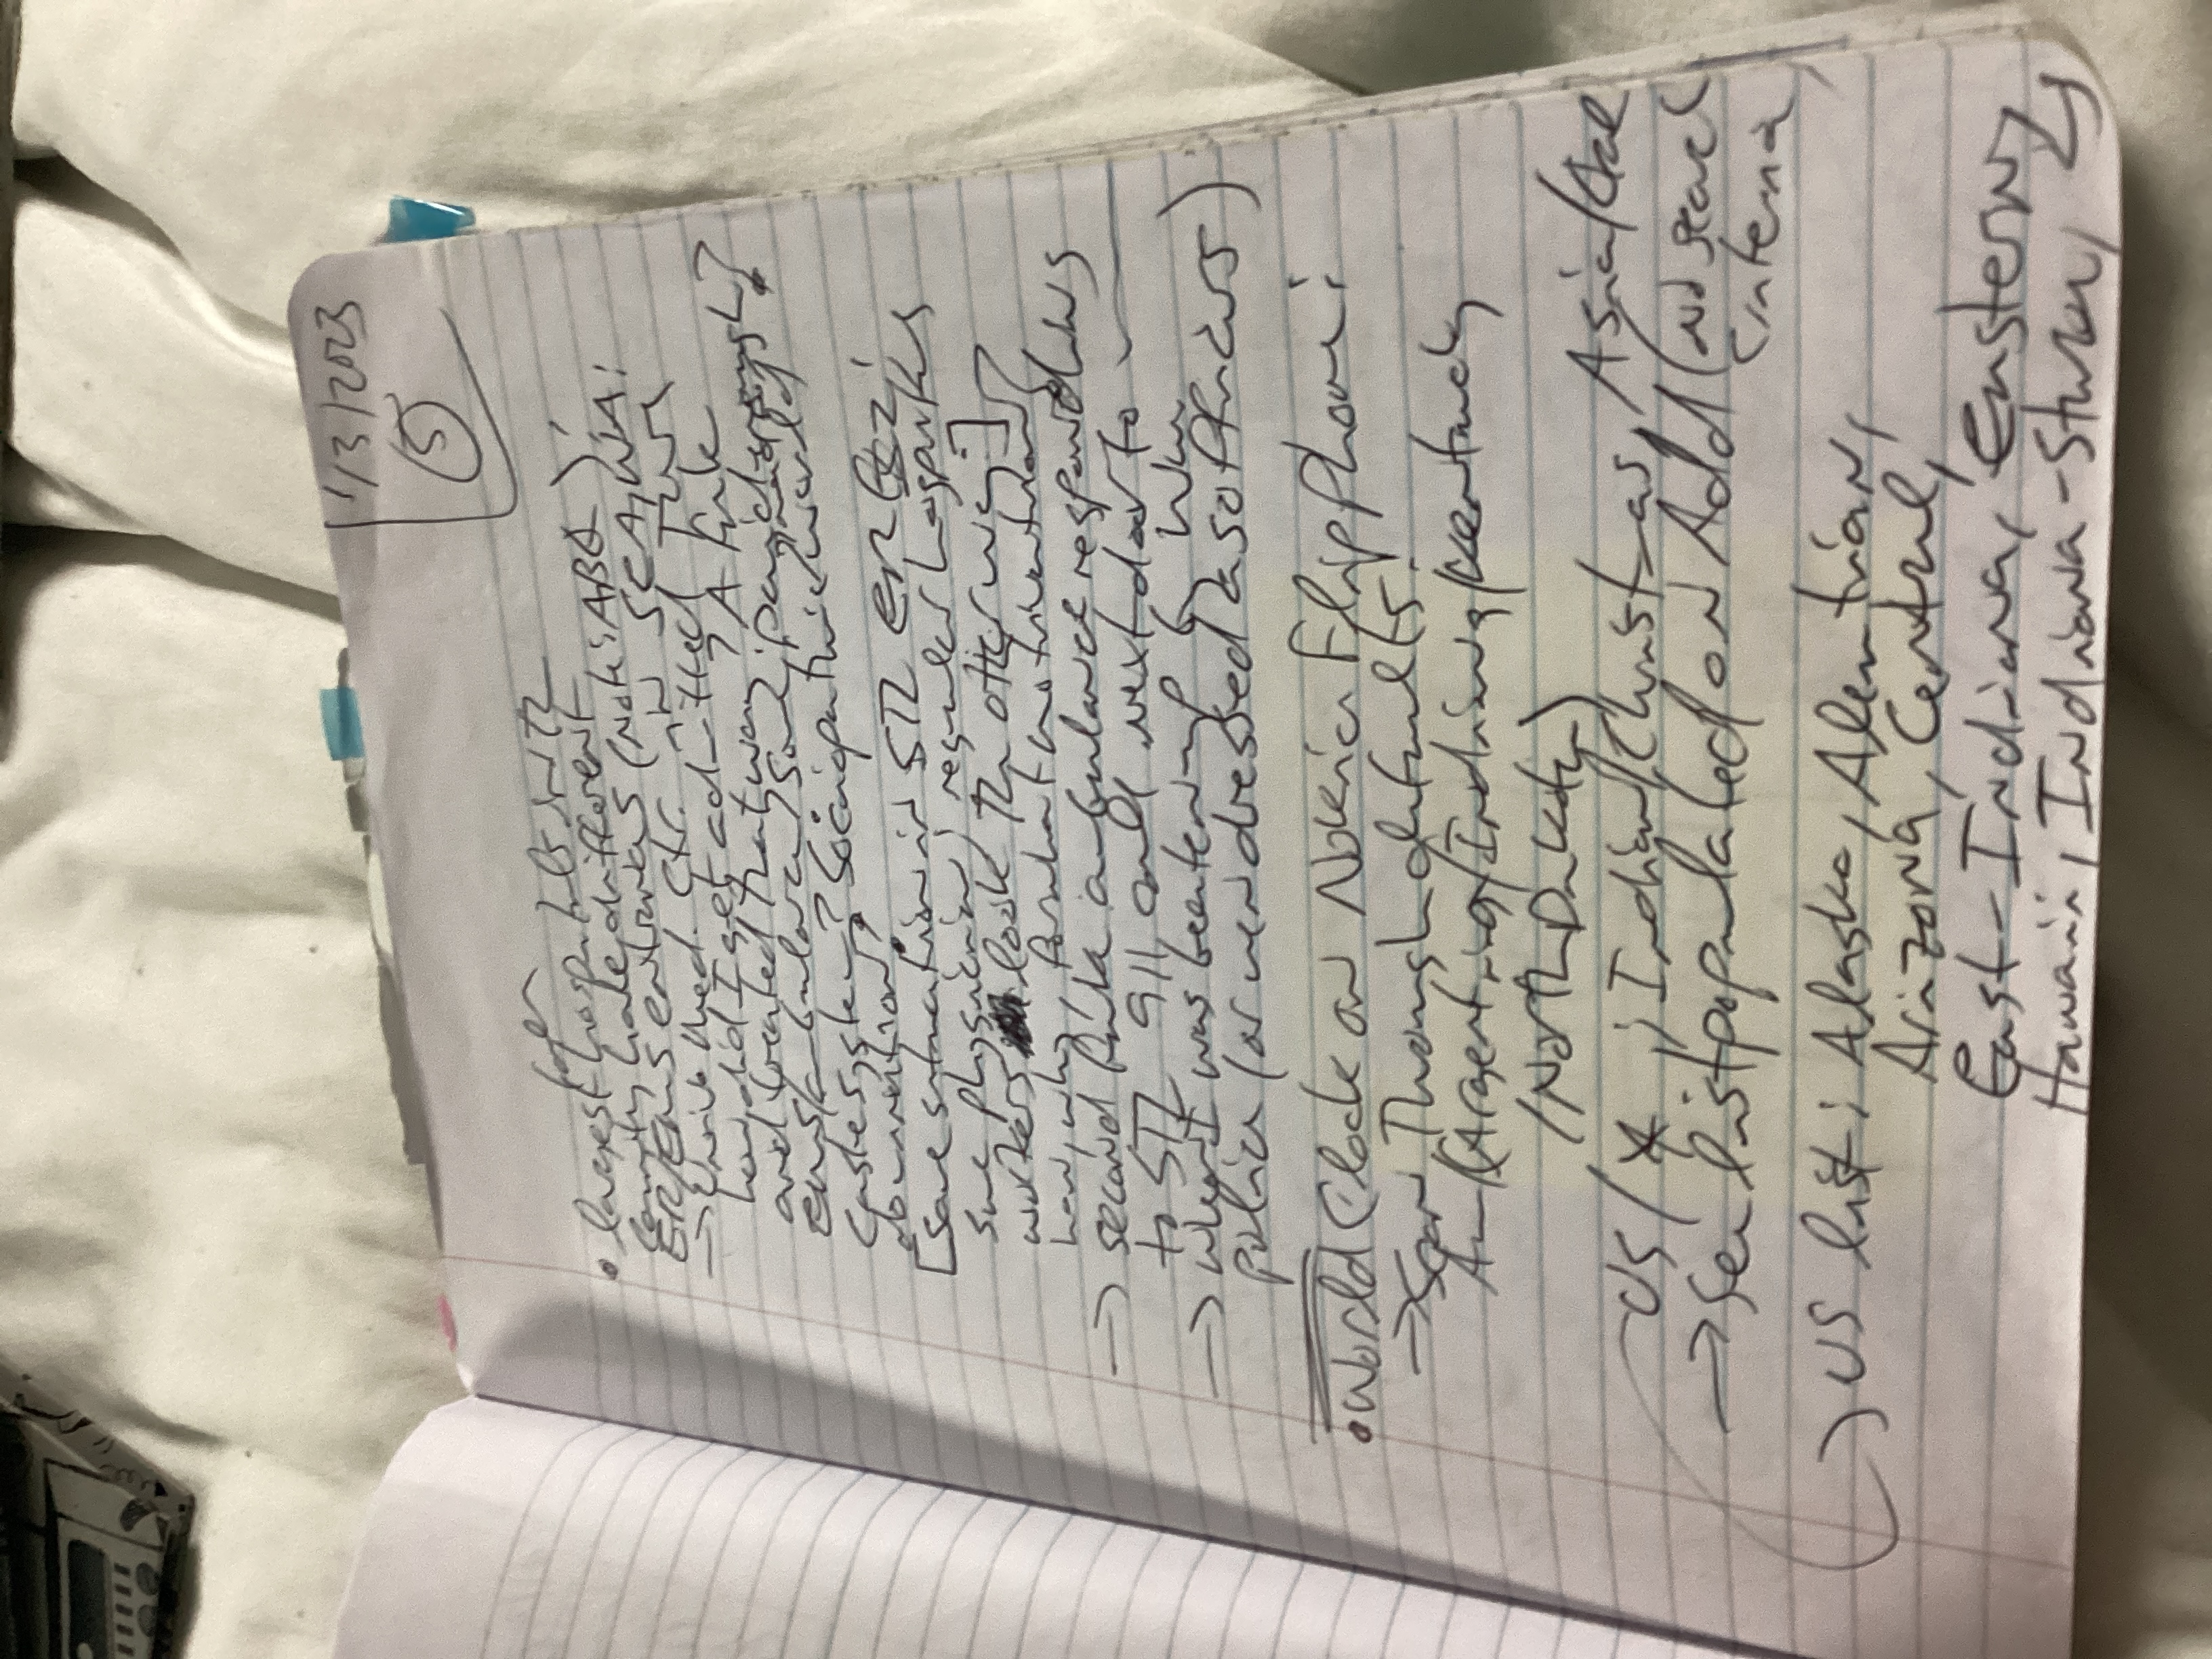 1/3/2023
5
• largest hospitals in the
county have different
ER/EMS entrances (Note: ABQ);
→ Univ. Med. Ctr. in SEA, WA:
how did I get admitted
and treated that way? A fake
EMS/ambulance? Some
caste system? Sociopathic world
domination?
[same situation in STL ER
same physician; regular hospital
workers look the other way.]
how, why, for what motivation?
→ second fake ambulance responding
to STL 911 call next door to
→ when I was beaten up by
police (or men dressed as officers)
• World Clock on Nokia Flip Phone:
→ Scan Through defaults.
Am/(Argentina/Indiana/Kentucky
/North Dakota)
US/* ; Indian/Christmas, Asia/
→ See list populated on Add (No search
US list: Alaska, Aleutian,
Arizona, Central,
East-Indiana, Eastern,
Hawaii, Indiana-Starke,